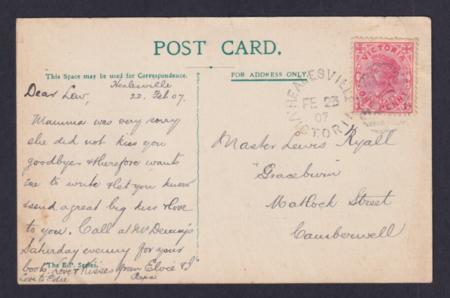 POST CARD.
This Space may be used for Correspondence.
FOR ADDRESS ONLY.
Healesville
22. Feb 07.
Dear Lew,
Mamma was very sorry
she did not kiss you
goodbye & therefore wants
me to write & let you know
& send a great big kiss & love
to you. Call at Mr
Saturday evening for your
book. Love & Kisses from Elvie &
Love to
"The Series.
VICTORIA
ONE PENNY
HEALESVILLE
FE 23
07
VICTORIA
Master Lewis Ryall
"Graceburn"
Matlock Street
Camberwell